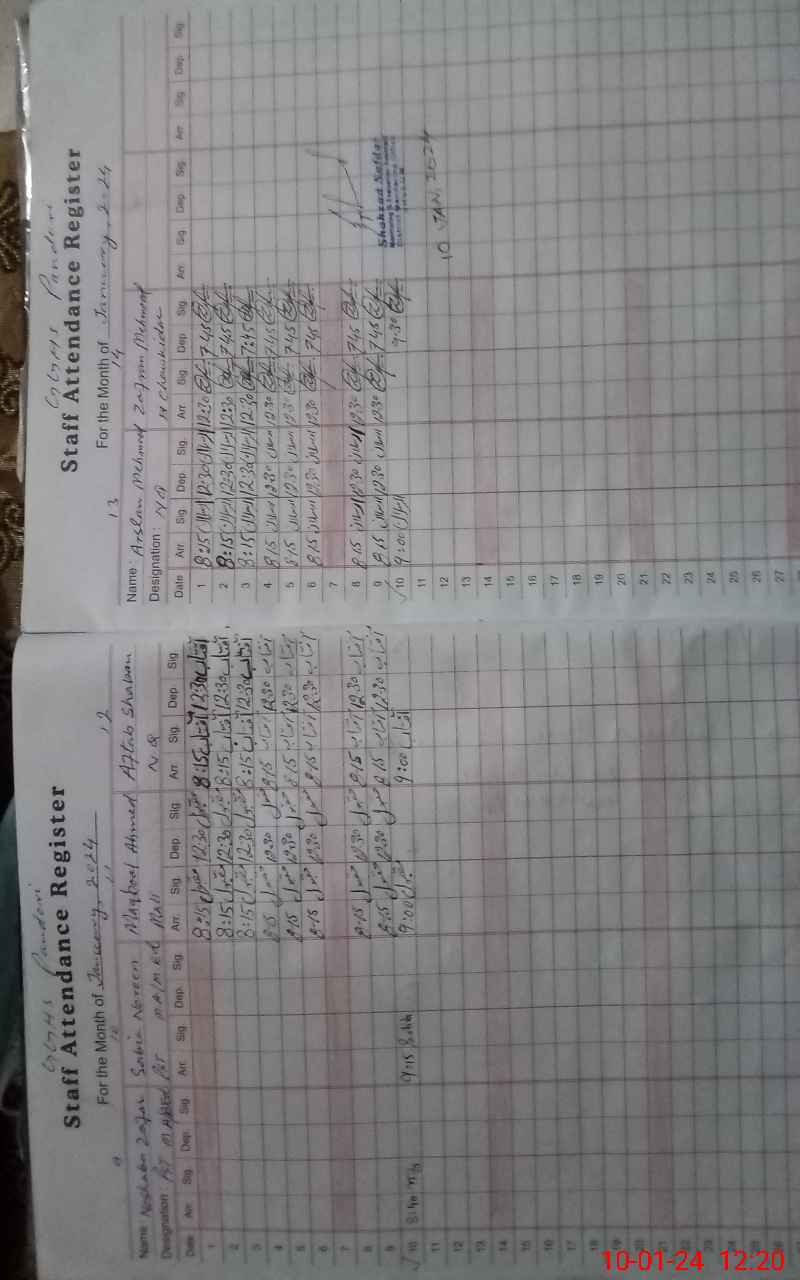 GGHS Pandori
Staff Attendance Register
For the Month of January, 2024
9 10 11 12
Name Noshaba Zafar Sabia Noreen Maqbool Ahmed Aftab Shaban
Designation: PST MA BEd PST MA/M Ed Mali N.Q
Date Arr. Sig. Dep. Sig. Arr. Sig. Dep. Sig. Arr. Sig. Dep. Sig. Arr. Sig. Dep. Sig.
1 8:15 مقبول 12:30 مقبول 8:15 آفتاب 12:30 آفتاب
2 8:15 مقبول 12:30 مقبول 8:15 آفتاب 12:30 آفتاب
3 8:15 مقبول 12:30 مقبول 8:15 آفتاب 12:30 آفتاب
4 8:15 مقبول 12:30 مقبول 8:15 آفتاب 12:30 آفتاب
5 8:15 مقبول 12:30 مقبول 8:15 آفتاب 12:30 آفتاب
6 8:15 مقبول 12:30 مقبول 8:15 آفتاب 12:30 آفتاب
7
8 8:15 مقبول 12:30 مقبول 8:15 آفتاب 12:30 آفتاب
9 8:15 مقبول 12:30 مقبول 8:15 آفتاب 12:30 آفتاب
10 8:40 9:15 9:00 مقبول 9:00 آفتاب
11
12
13
14
15
16
17
18
19
20
21
22
23
24
25
26
GGHS Pandori
Staff Attendance Register
For the Month of January, 2024
13 14
Name: Arslan Mehmood Zafran Mehmood
Designation: N.Q Chowkidar
Date Arr. Sig. Dep. Sig. Arr. Sig. Dep. Sig. Arr. Sig. Dep. Sig. Arr. Sig. Dep. Sig.
1 8:15 ارسلان 12:30 ارسلان 12:30 7:45
2 8:15 ارسلان 12:30 ارسلان 12:30 7:45
3 8:15 ارسلان 12:30 ارسلان 12:30 7:45
4 8:15 ارسلان 12:30 ارسلان 12:30 7:45
5 8:15 ارسلان 12:30 ارسلان 12:30 7:45
6 8:15 ارسلان 12:30 ارسلان 12:30 7:45
7
8 8:15 ارسلان 12:30 ارسلان 12:30 7:45
9 8:15 ارسلان 12:30 ارسلان 12:30 7:45
10 9:00 ارسلان 9:30
11
12
13
14
15
16
17
18
19
20
21
22
23
24
25
26
27
Shahzad Safdar
10 JAN 2024
10-01-24 12:20